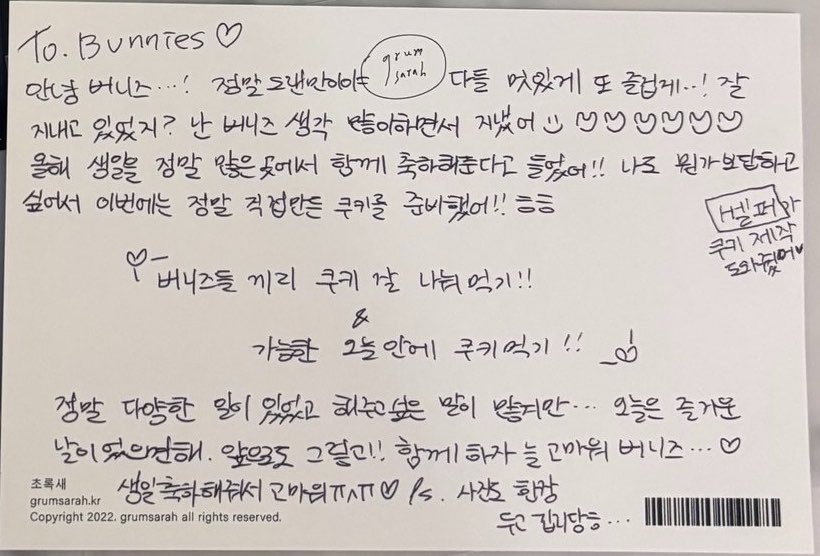 To. Bunnies ♡
grum
sarah
안녕 버니즈...! 정말 오랜만이야 다들 맛있게 또 즐겁게..! 잘
지내고 있었지? 난 버니즈 생각 많이하면서 지냈어
올해 생일을 정말 많은 곳에서 함께 축하해준다고 들었어!! 나도 뭔가 보답하고
싶어서 이번에는 정말 직접만든 쿠키를 준비했어!! ㅎㅎ
헬퍼가
쿠키 제작
도와줬어♥
버니즈들 끼리 쿠키 잘 나눠 먹기!!
&
가능한 오늘 안에 쿠키 먹기!!
정말 다양한 일이 있었고 해주고 싶은 말이 많지만... 오늘은 즐거운
날이었으면해. 앞으로도 그렇고!! 함께 하자 늘 고마워 버니즈... ♡
생일축하해줘서 고마워ㅠㅅㅠ♡ Ps. 사진도 한장
두고 갑니당ㅎ...
초록새
grumsarah.kr
Copyright 2022. grumsarah all rights reserved.